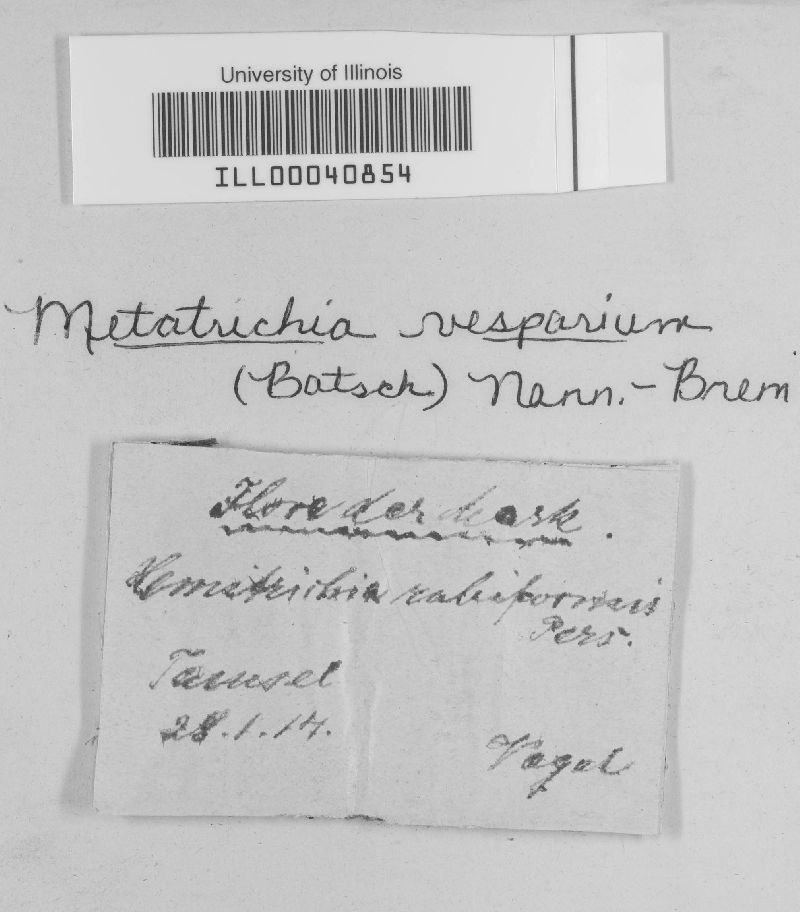 University of Illinois
ILL00040854
Metatrichia vesparium
(Batsch) Nann.-Brem
Flora der Mark.
Hemitrichia rubiformis
Pers.
Tamsel
28.1.14.
Vogel